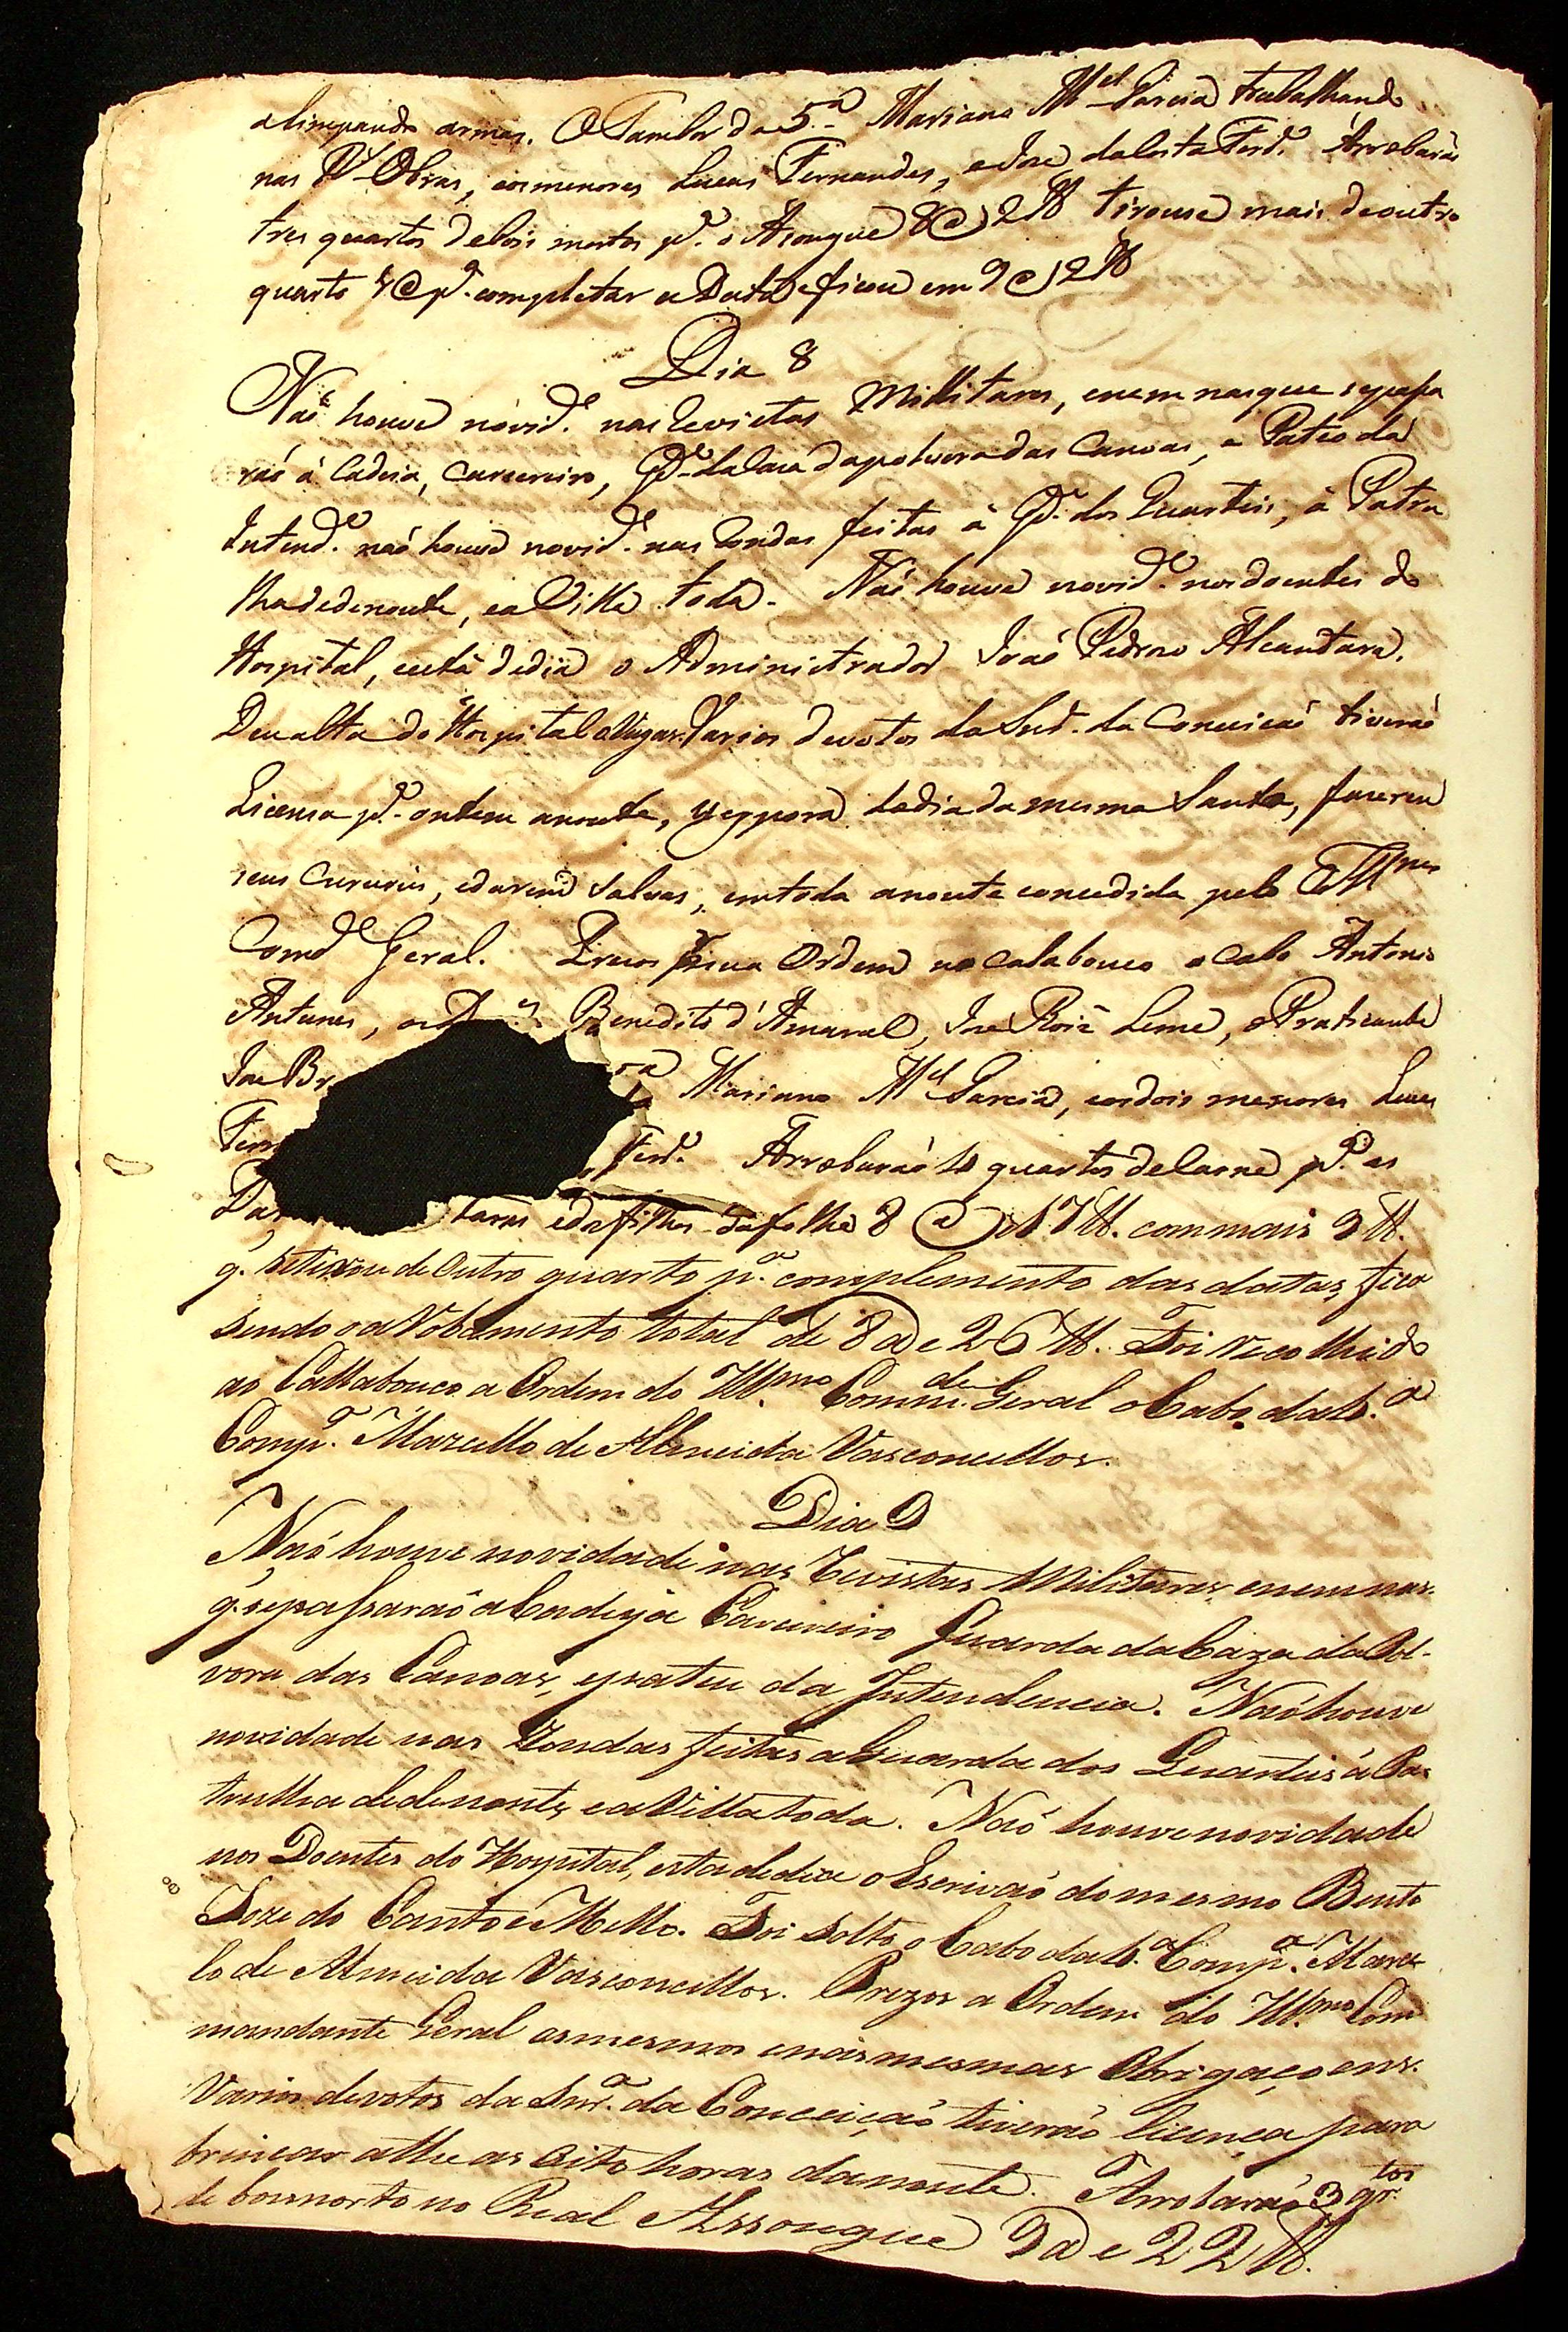 alimpando armas. O Tambor da 5.ª Mariano M.el Garcia trabalhando
nas R.s Obras, eos menores Lucas Fernandes, e Joze da Costa Ferd.º Arrobarão
tres quartos de bois mortos p.ª o Asougue 8@ 2 lb tirouse mais de outro
quarto @ p.ª completar a Data e ficou em 9@ 2 lb
Dia 8
Naõ houve novid.e nas Revistas Millitares, enem nas que sepaſsa
raõ á Cadeia, Carcereiro, G.da da Caza dapolvora das Canoas, e Pateo da
Intend.ª naõ houve novid.e nas Rondas feitas á G.da dos Quarteis, á Patru
lha dedenoute, ea Villa toda. Naõ houve novid.e nos doentes do
Hospital, está dedia o Administrador Joaõ Pedro Alcantara.
Deu alta do Hospital Varios devotos da Snr.ª da Conceicaõ tiveraõ
Licensa p.ª ontem anoute, vespora do dia da mesma Santa, fazerem
seus Cururús, edarem Salvas, emtoda anoute concedida pelo Ill.mo
Com.de Geral. Prezos sua Ordem no calabouco o Cabo Antonio
Antunes, Benedito d'Amaral, Joze Roiz Leme, o Praticante
Joze Br Mariano M.el Garcia, eos dois menores Lucas
Fern Ferd.º Arrobaraõ 4 quartos de Carne p.ª as
Da tares edafilhos dafolha 8@ 17 lb. com mais 9 lb.
q. setirou de Outro quarto p.ª complemento das datas, fica
sendo o aRobamento total de 8@ e 26 lb. Foi recolhido
ao Callabouco a Ordem do Ill.mo Comm.de Geral o Cabo da 6.ª
Comp.ª Marcello de Almeida Vasconcellos.
Dia 9
Naõ houve novidade nas Revistas Militares, enem nas
q. sepaſsaraõ a Cadeya Carcereiro Guarda da Caza da Pol-
vora das Canoas, epateu da Intendencia. Naõ houve
novidade nas Rondas feitas a Guarda dos Quarteis á Pa-
trulha dedenoute, ea Villa toda. Naõ houve novidade
nos Doentes do Hospital, esta dedia o Escrivaõ do mesmo Bento
Joze do Canto e Mello. Foi Solto o Cabo da 6.ª Comp.ª Marcel
lo de Almeida Vasconcellos. Prezos a Ordem do Ill.mo Com
mandante Geral os mesmos enas mesmas Obrigaçoens.
Varios devotos da Snr.ª da Conceiçaõ tiveraõ licença para
brincar athe as Oito horas danoute. Arrobaraõ 3 qr.tos
de boi morto no Real Assougue 9@ e 22 lb.